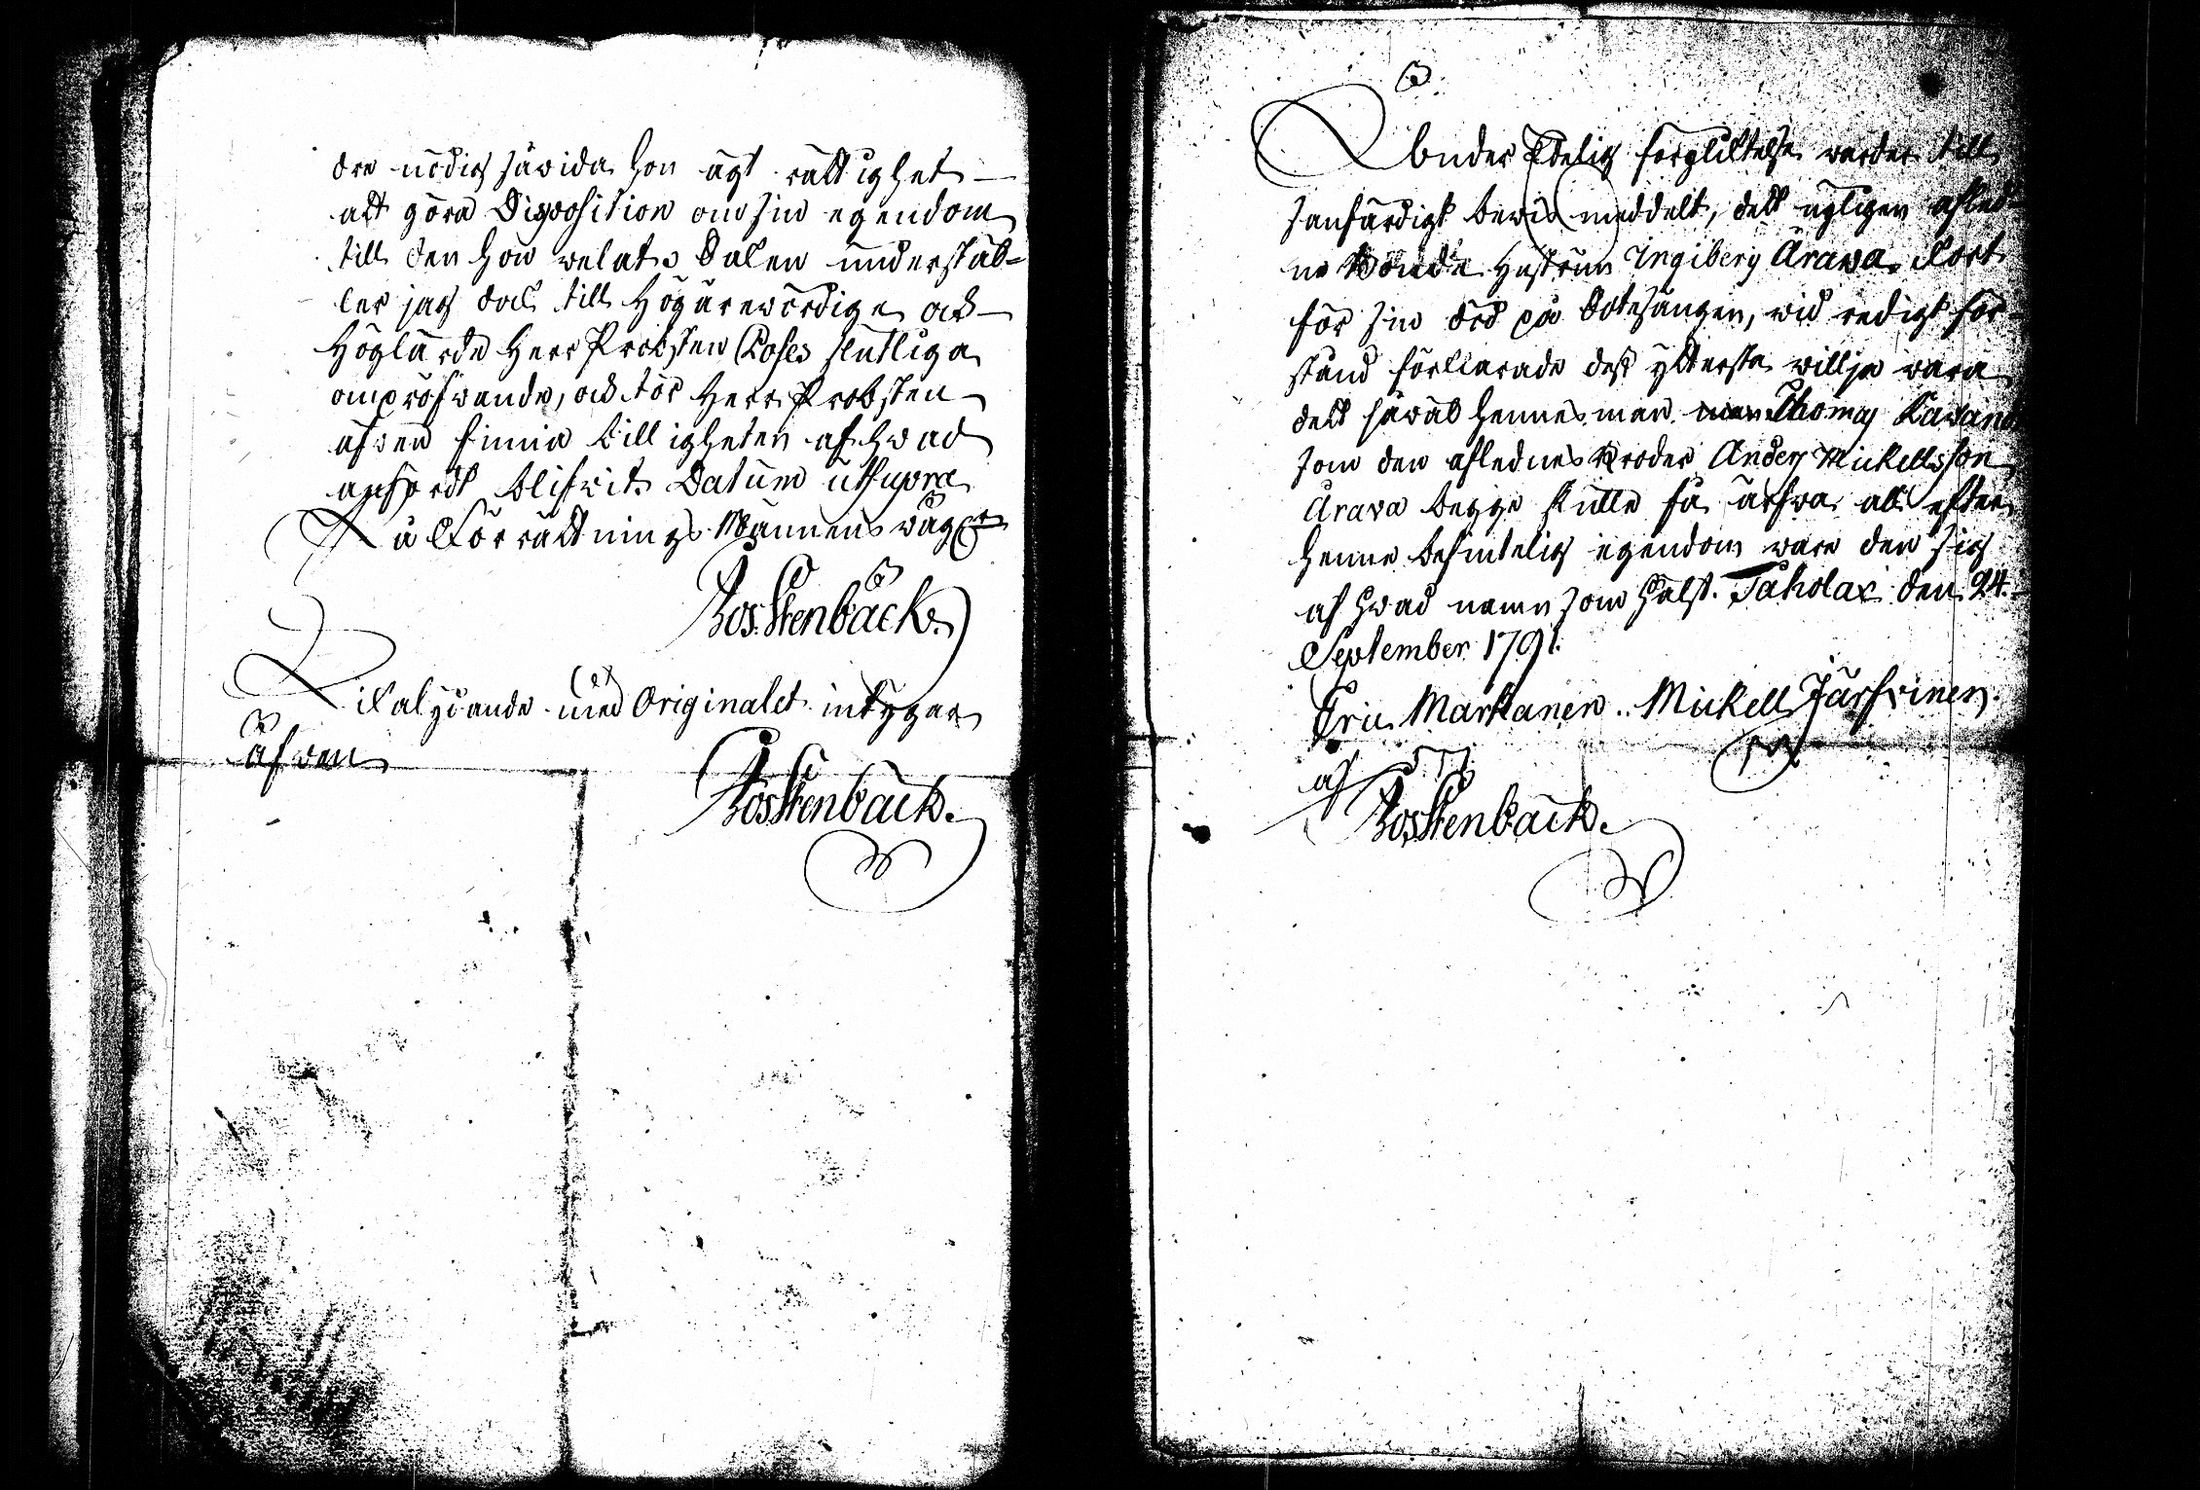 dre nödig såwida hon ägt rättighet
att göra Disposition om sin egendom
till den hon velat. Saken understäl-
ler jag dock till Högärewördige och
Höglärde Herr Probsten slutliga
ompröfwande, och tör Herr Probsten
äfwen finna billigheten af hwad
anfördt blifwit. Datum ut supra
På Förrättnings Männens wägnar
Jos. Stenbäck.
Likalydande med Originalet intygar
äfwen
Jos Stenbäck.
Under Edelig förpliktelse warder till
sanfärdigt bewis meddelt, dett nyligen afled-
ne Bonde Hustrun Ingiberg Arava kort
för sin död på Dotesängen, wid redigt för-
stånd förklarade dess yttersta willja wara
dett såwäl hennes man Thomas Kavan
som den aflednes Broder Anders Mickellsson
Arava begge skulle få ärfwa all efter
henne befintelig egendom ware den sig
af hwad namn som hälst. Taholax den 24.
September 1791.
Eric Markanen. Mickell Järfvinen.
af
Jos Stenbäck.